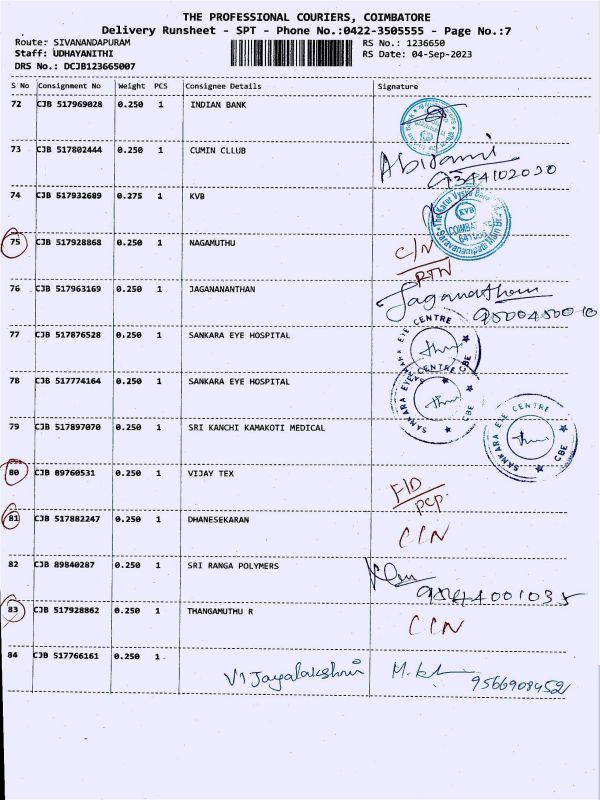 THE PROFESSIONAL COURIERS, COIMBATORE
Delivery Runsheet - SPT - Phone No.:0422-3505555 - Page No.:7
Route: SIVANANDAPURAM RS No.: 1236650
Staff: UDHAYANITHI RS Date: 04-Sep-2023
DRS No.: DCJB123665007
S No Consignment No Weight PCS Consignee Details Signature
72 CJB 517969028 0.250 1 INDIAN BANK
73 CJB 517802444 0.250 1 CUMIN CLLUB Abirami
9344102030
74 CJB 517932689 0.275 1 KVB
KVB
75 CJB 517928868 0.250 1 NAGAMUTHU C/N
RTN
76 CJB 517963169 0.250 1 JAGANANANTHAN Jagananthan
9500450010
77 CJB 517876528 0.250 1 SANKARA EYE HOSPITAL SANKARA EYE CENTRE CBE
78 CJB 517774164 0.250 1 SANKARA EYE HOSPITAL SANKARA EYE CENTRE CBE
79 CJB 517897070 0.250 1 SRI KANCHI KAMAKOTI MEDICAL SANKARA EYE CENTRE CBE
80 CJB 89760531 0.250 1 VIJAY TEX F/D
PCP.
81 CJB 517882247 0.250 1 DHANESEKARAN C/N
82 CJB 89840287 0.250 1 SRI RANGA POLYMERS
83 CJB 517928862 0.250 1 THANGAMUTHU R C/N
84 CJB 517766161 0.250 1 Vijayalakshmi 9566908452